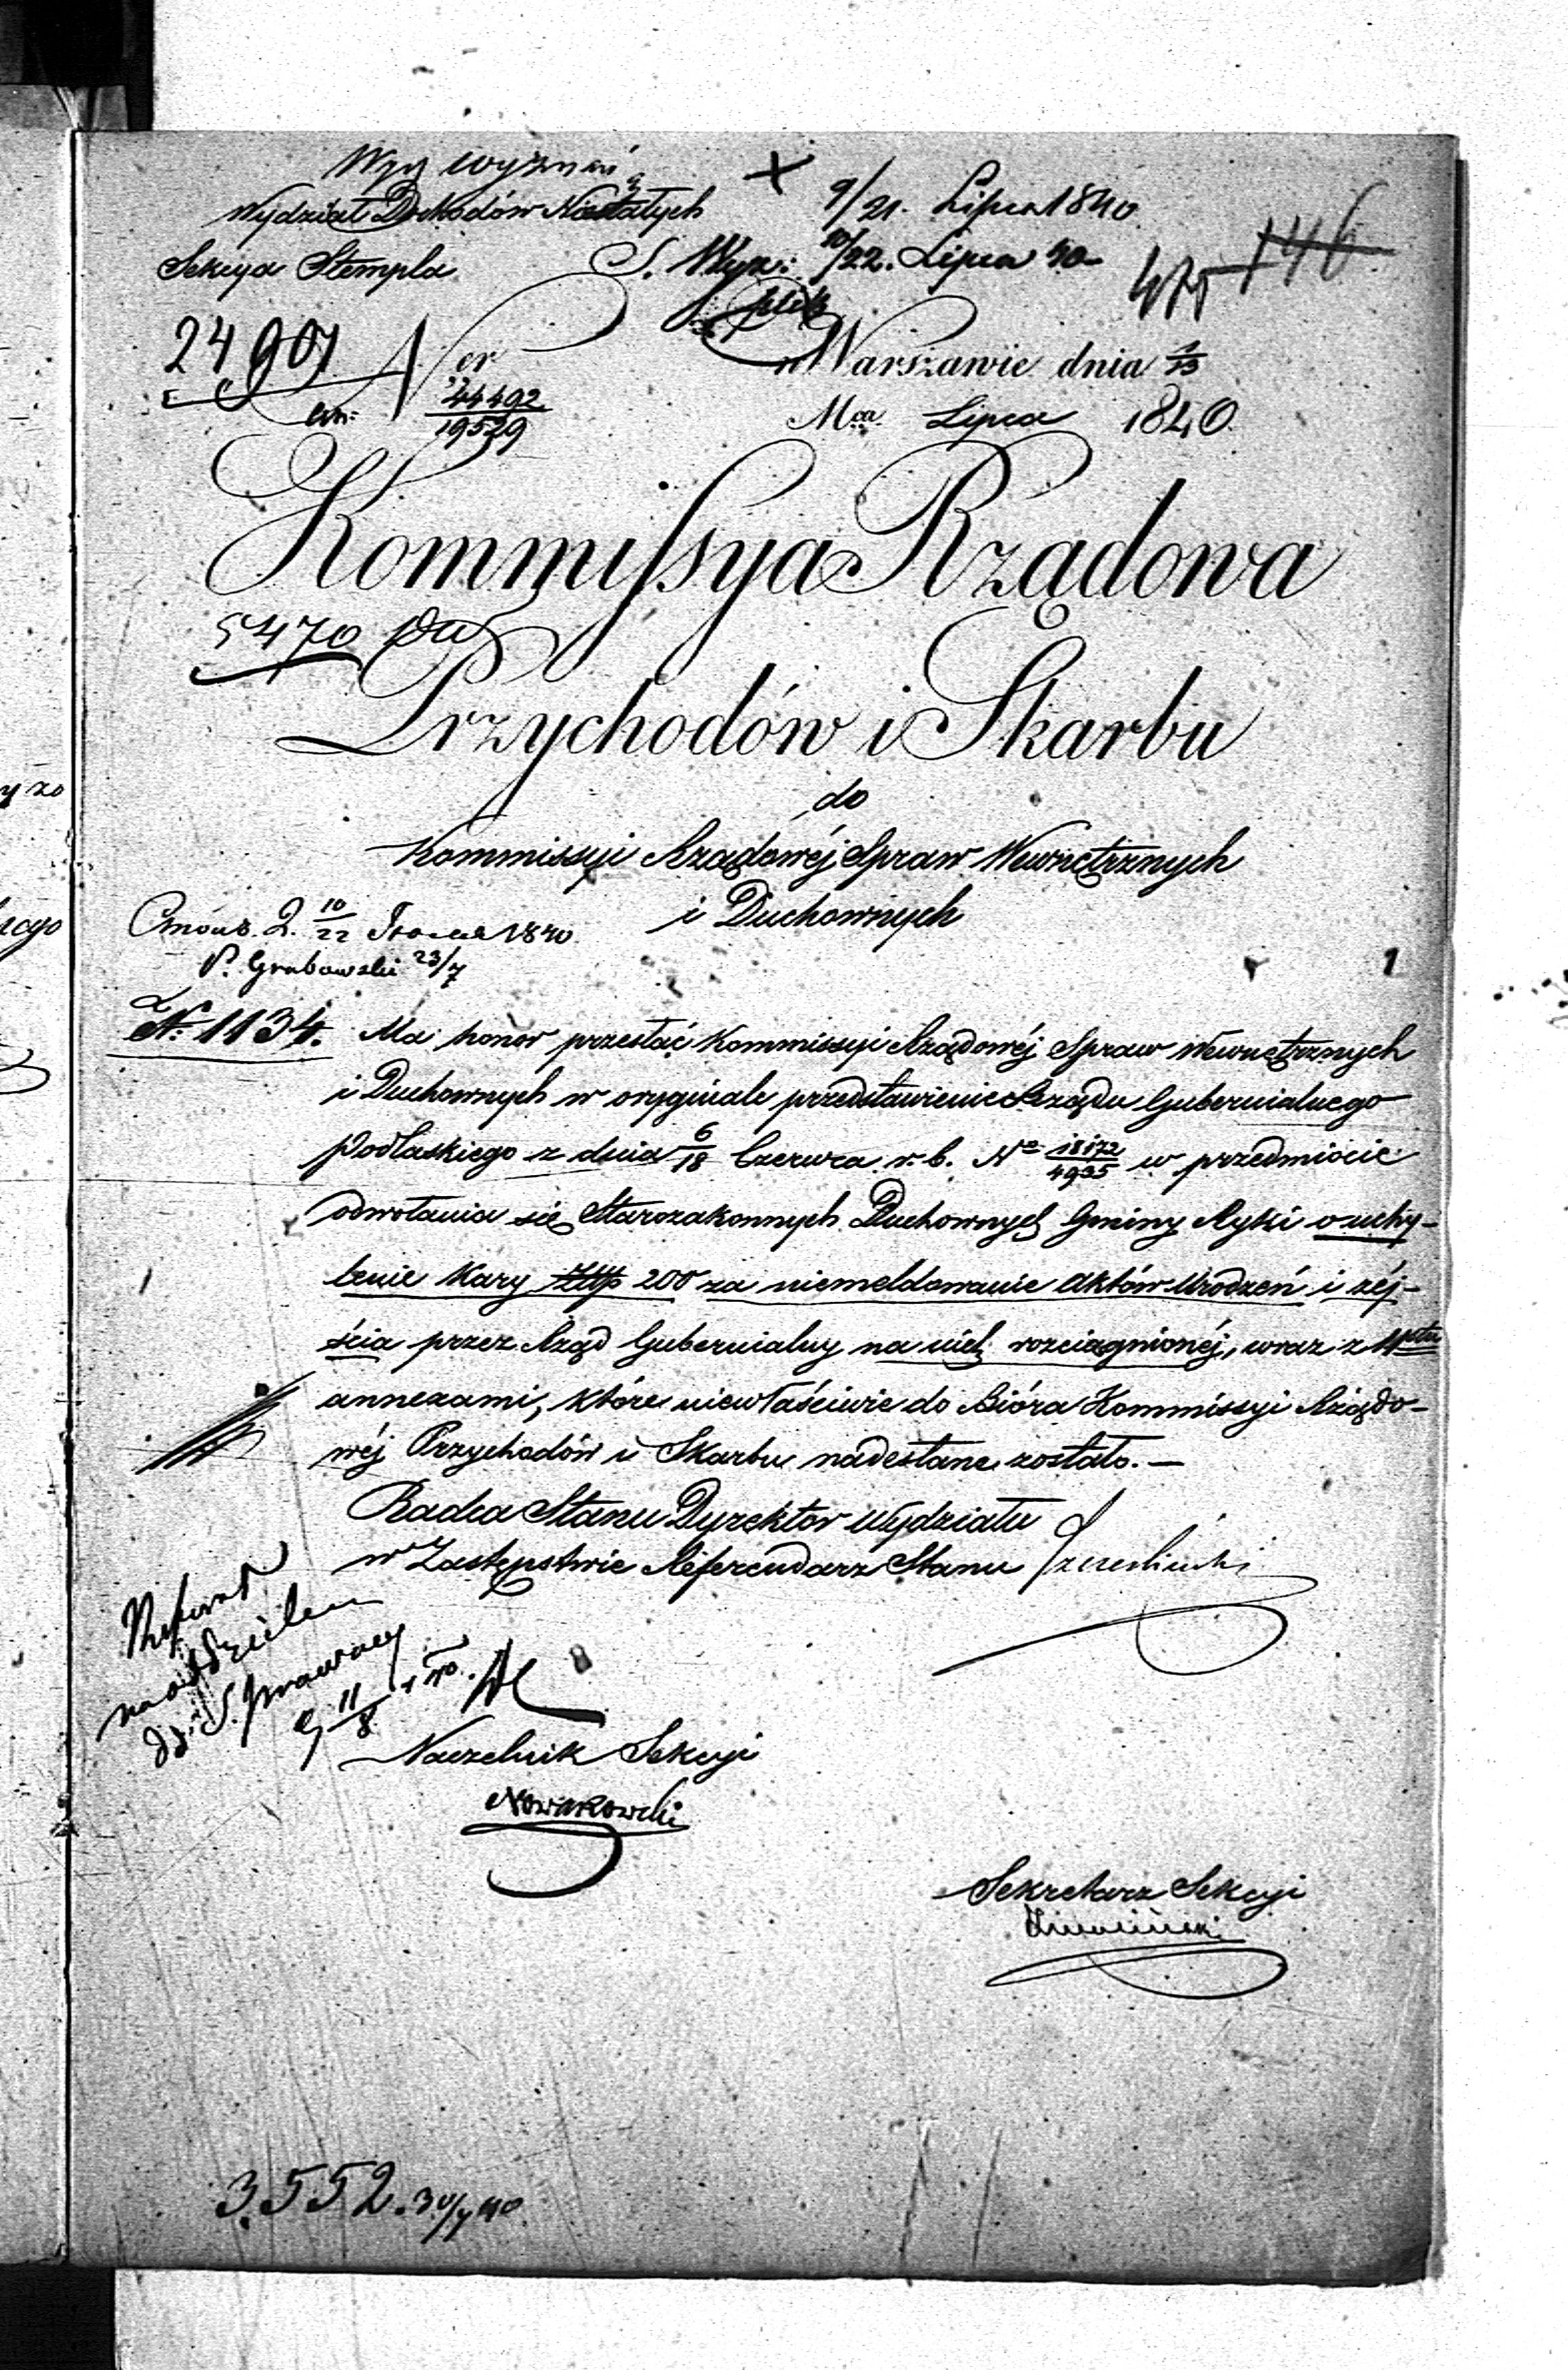 Wyz wyznań
Wydział Dochodów Niestałych
9/21. Lipca 1840
Sekcya Stempla
S. Wyzn: 10/22. Lipca 40
475 146
24907
Ner 44492/19529
w Warszawie dnia 1/13
Mca Lipca 1840.
Kommissya Rządowa
5470
Przychodów i Skarbu
do
Kommissyi Rządowéj Spraw Wewnętrznych
i Duchownych
10/22 1840
P. Grabowski 23/7
N: 1134. Ma honor przesłać Kommissyi Rządowéj Spraw Wewnętrznych
i Duchownych w oryginale przedstawienie Rządu Gubernialnego
Podlaskiego z dnia 6/18 Czerwca r. b. No 18172/4935 w przedmiocie
odwołania się Starozakonnych Duchownych Gminy Ryki o uchy-
lenie Kary Złp 200 za niemeldowanie Aktów Urodzeń i zéj-
ścia przez Rząd Gubernialny na nich rozciągnionéj, wraz z
annexami, które niewłaściwie do Bióra Kommissyi Rządo-
wéj Przychodów i Skarbu nadesłane zostało. —
Radca Stanu Dyrektor Wydziału
w Zastępstwie Referendarz Stanu
Referat
11/8
Naczelnik Sekcyi
Nowakowski
Sekretarz Sekcyi
3.552. 30/7 40